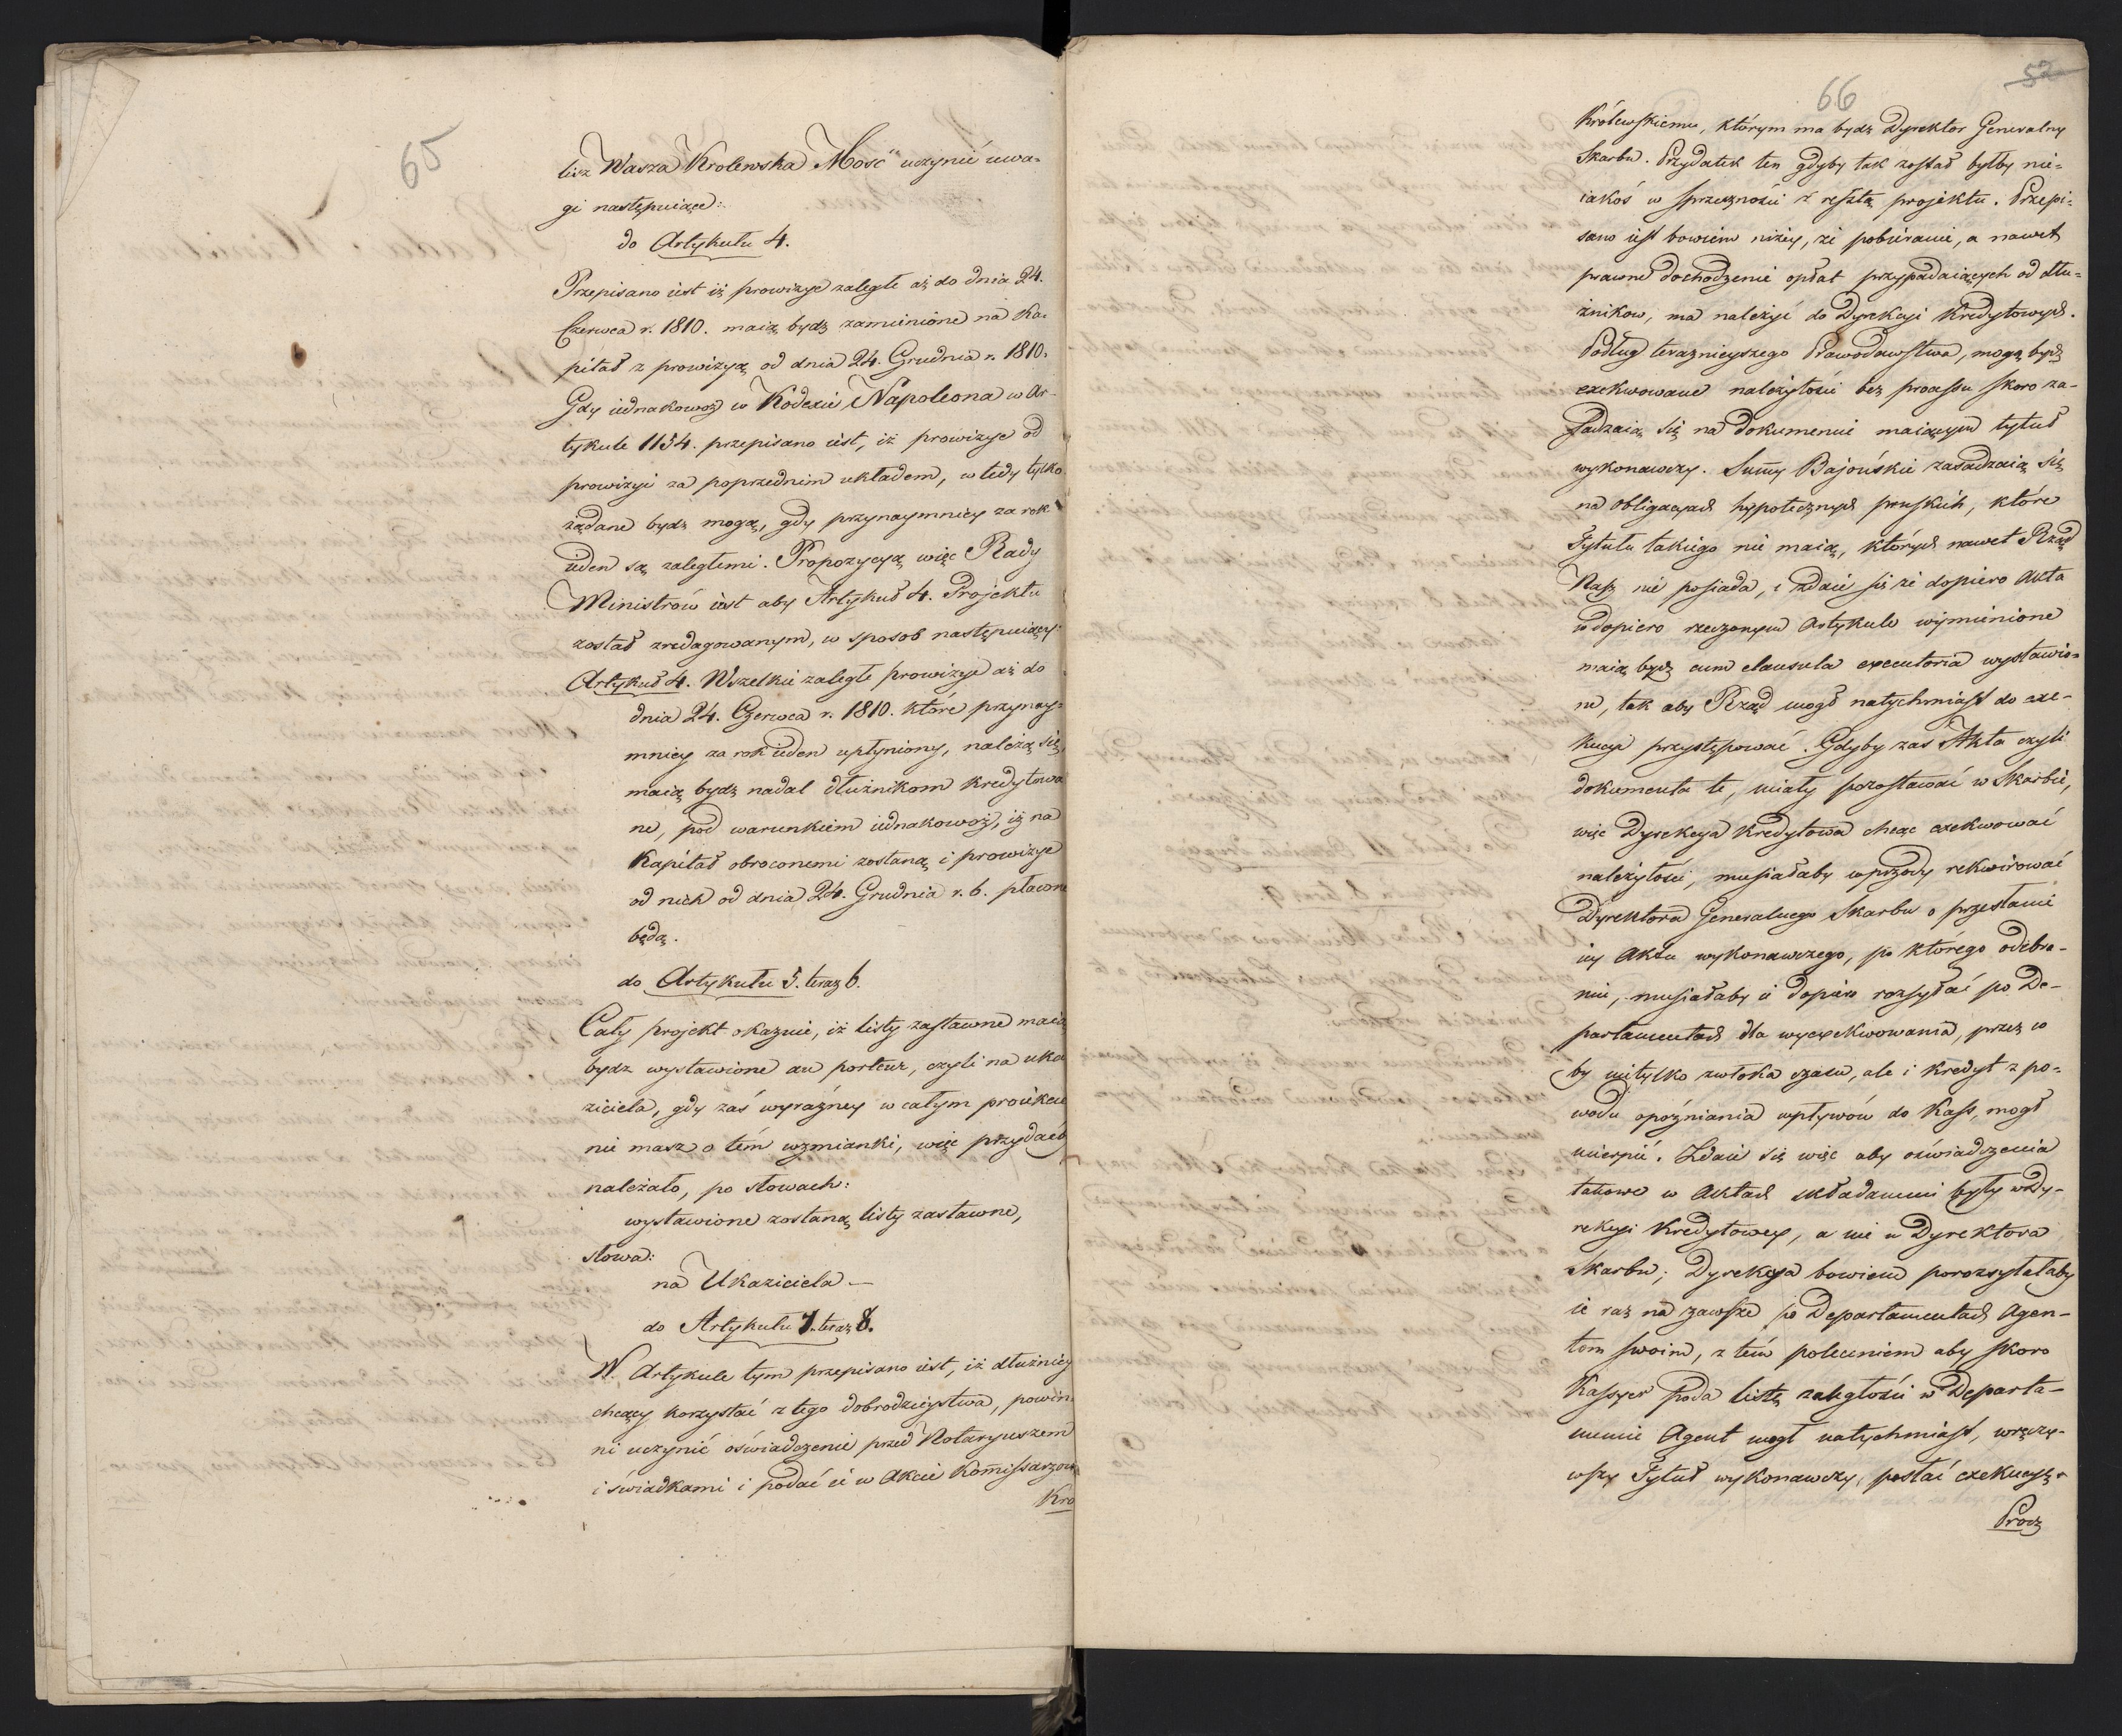 65
lisz Wasza Krolewska Mość uczynić uwa-
gi następuiące:
do Artykułu 4.
Przepisano iest iż prowizye zaległe aż do dnia 24.
Czerwca r. 1810. maią bydz zamienione na Ka-
pitał z prowizyą od dnia 24. Grudnia r. 1810.
Gdy iednakowoż w Kodexie Napoleona w Ar-
tykule 1154. przepisano iest, iż prowizye od
prowizyi za poprzednim układem, wtedy tylko
żądane bydz mogą, gdy przynaymniey za rok
ieden są zaległemi. Propozycyą więc Rady
Ministrów iest aby Artykuł 4. Projektu
został zredagowanym, w sposob następuiący:
Artykuł 4. Wszelkie zaległe prowizye aż do
dnia 24. Czerwca r. 1810. które przynay-
mniey za rok ieden upłyniony, należą się,
maią bydz nadal dłużnikom kredytowa
ne, pod warunkiem iednakowoż, iż na
Kapitał obroconemi zostaną i prowizye
od nich od dnia 24. Grudnia r. b. płacone
będą.
do Artykułu 5. teraz 6.
Cały projekt okazuie, iż listy zastawne maią
bydz wystawione au porteur, czyli na uka
ziciela, gdy zaś wyraźney w całym proiekcie
nie masz o tém wzmianki, więc przydaćby
należało, po słowach:
wystawione zostaną listy zastawne,
słowa:
na Ukaziciela —
do Artykułu 7. teraz 8.
W Artykule tym przepisano iest, iż dłużnicy
chcący korzystać z tego dobrodzieystwa, powin
ni uczynić oświadczenie przed Notaryuszem
i świadkami i podać ie w Akcie Kommissarzowi
Kro
66
52
Królewskiemu, którym ma bydz Dyrektor Generalny
Skarbu. Przydatek ten gdyby tak został byłby nie-
iakoś w sprzeczności z resztą projektu. Przepi-
sano iest bowiem niżey, że pobieranie, a nawet
prawne dochodzenie opłat przypadaiących od dłu-
żnikow, ma należyć do Dyrekcyi Kredytowych.
Podług teraznieyszego Prawodawstwa, mogą bydz
exekwowane należytości bez processu skoro za-
sadzaią się na Dokumencie maiącym tytuł
wykonawczy. Summy Bajońskie zasadzaią się
na obligacyach hypotecznych pruskich, które
Tytułu takiego nie maią, których nawet Rząd
Nasz nie posiada, i zdaie się że dopiero Akta
w dopiero rzeczonym Artykule wymienione
maią bydz cum clausula executoria wystawio-
ne, tak aby Rząd mogł natychmiast do exe-
kucyi przystępować. Gdyby zas Akta czyli
dokumenta te, miały pozostawać w Skarbie,
więc Dyrekcya Kredytowa chcąc exekwować
należytości, musiałaby wprzody rekwirować
Dyrektora Generalnego Skarbu o przesłanie
iey Aktu wykonawczego, po którego odebra-
niu, musiałaby ie dopiero rozsyłać po De-
partamentach dla wyexekwowania, przez co
by nietylko zwłoka czasu, ale i kredyt z po-
wodu opóźniania wpływów do Kass, mogł
ucierpić. Zdaie się więc aby oświadczenia
takowe w Aktach składanemi były w Dy-
rekcyi Kredytowey, a nie u Dyrektora
Skarbu; Dyrekcya bowiem porozsyłałaby
ie raz na zawsze po Departamentach Agen-
tom swoim, z tém poleceniem aby skoro
Kassyer poda listę zaległości w Departa-
mencie Agent mogł natychmiast, wręczy-
wszy Tytuł wykonawczy, posłać exekucyą.
Procz